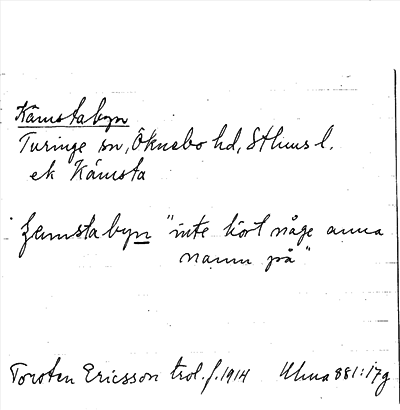 Kämstabyn
Turinge sn, Öknebo hd, Sthms l.
ek Kämsta
"inte hört någe anna
namn på"
Torsten Ericsson trol. f. 1914 Ulma 881:17g